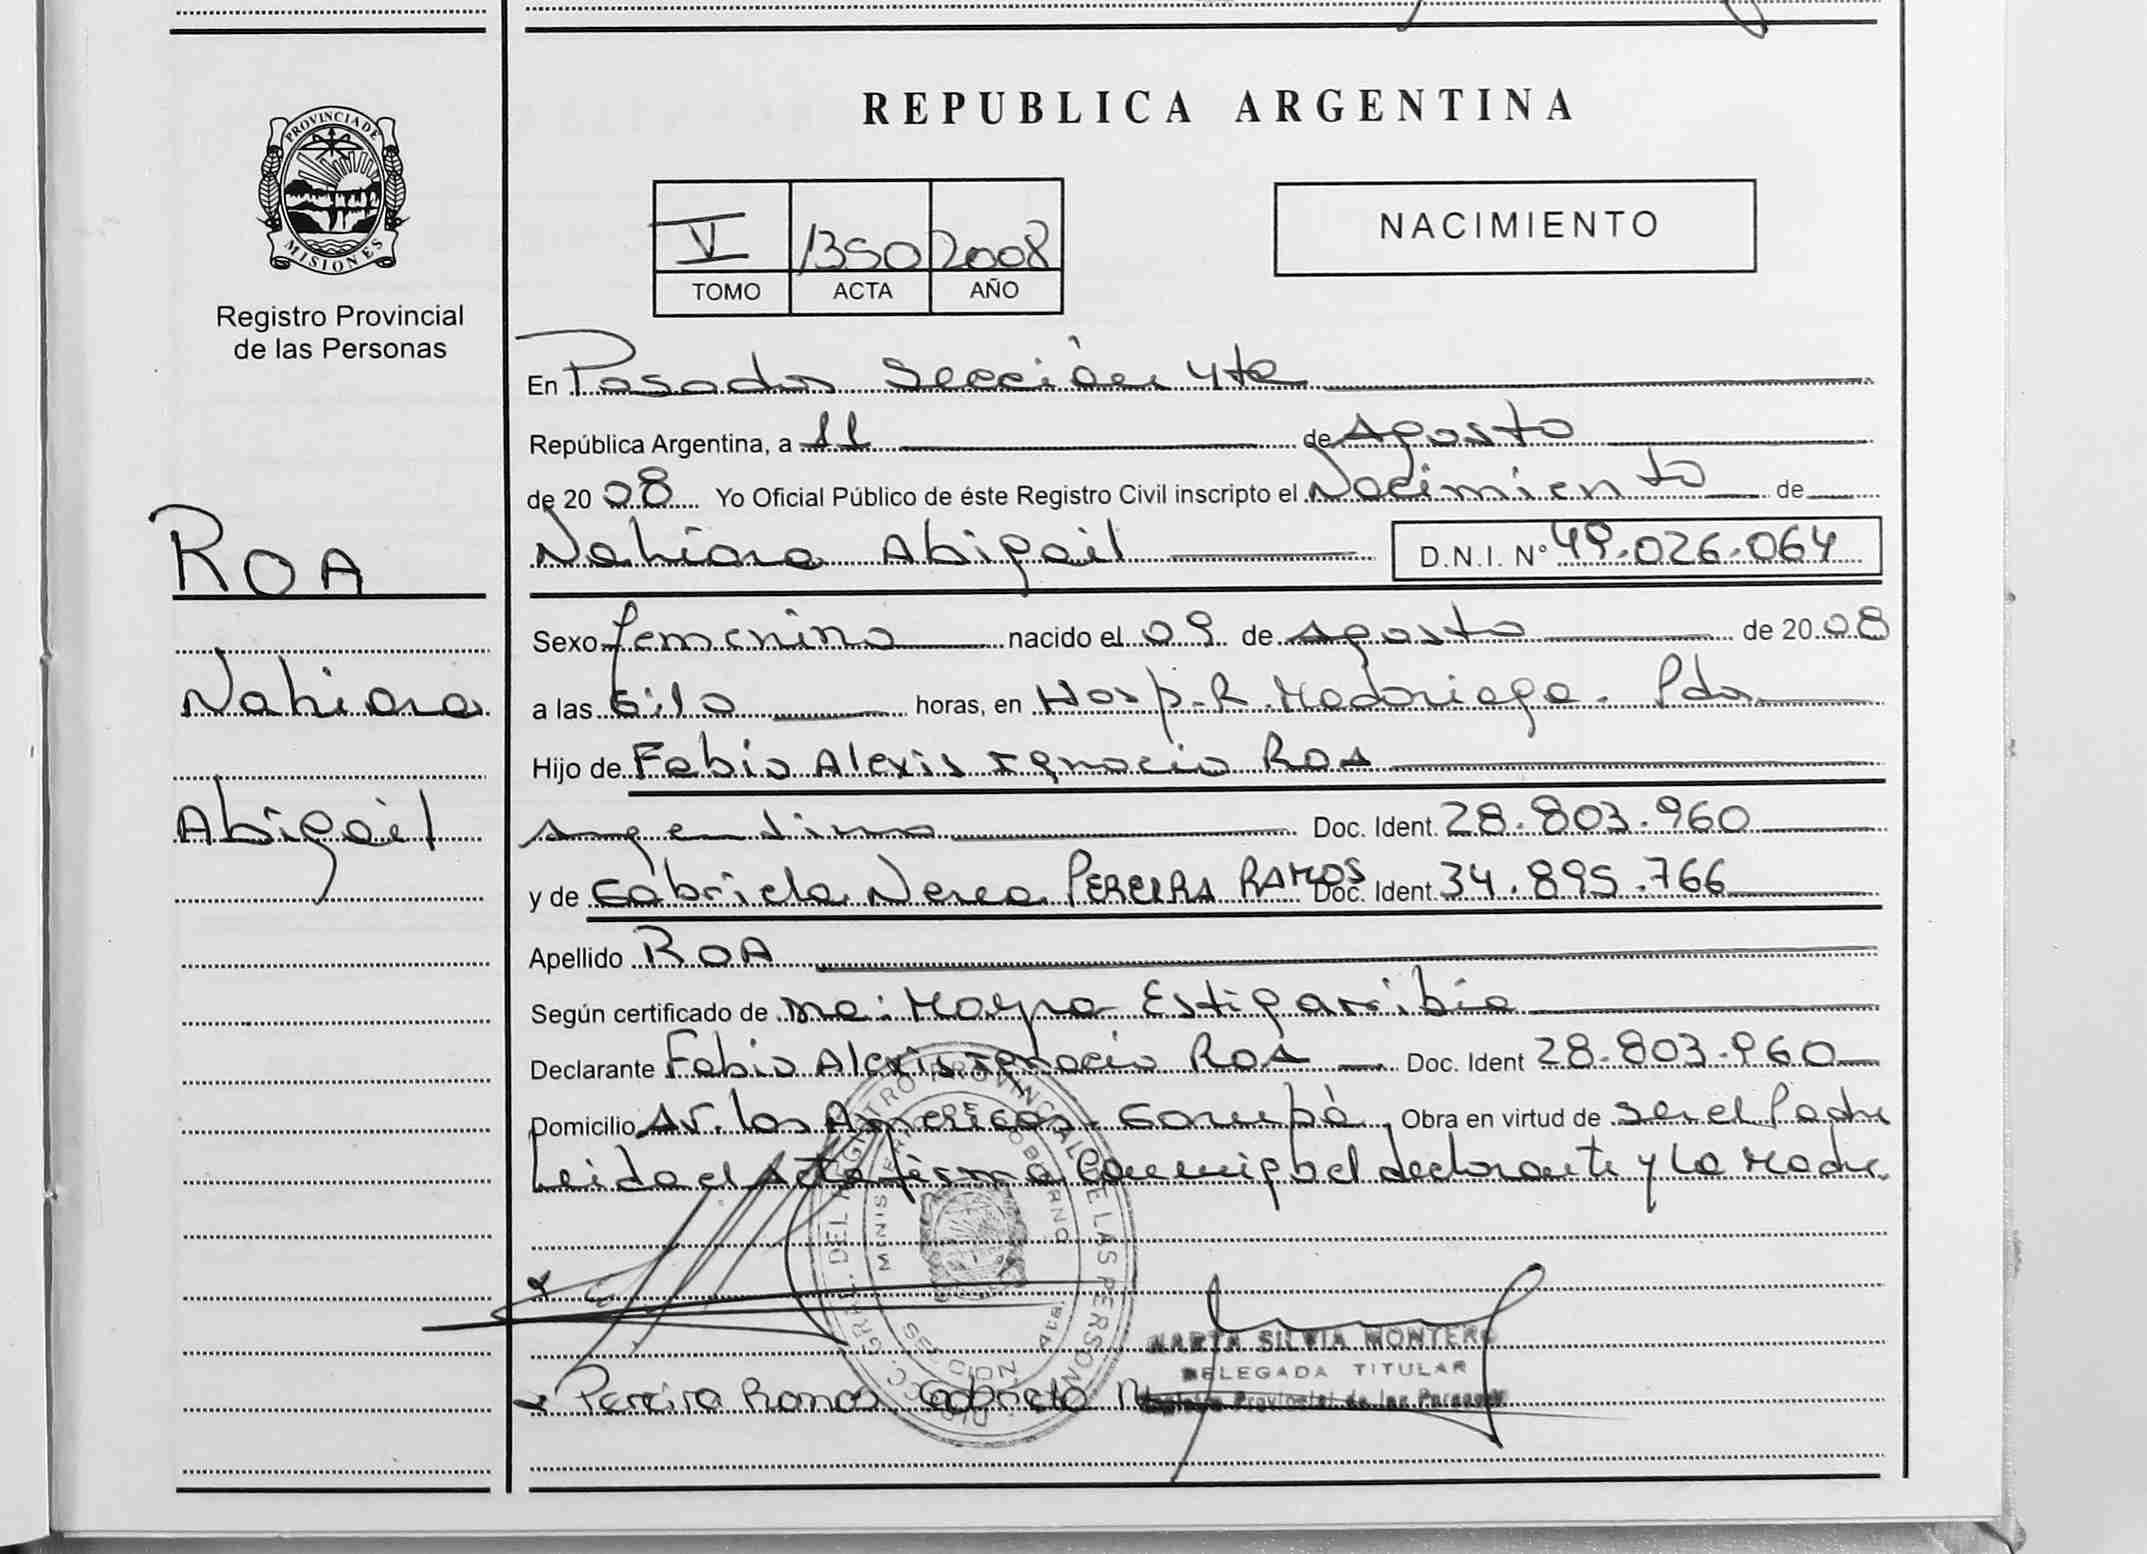 PROVINCIA DE
MISIONES
Registro Provincial
de las Personas
ROA
Nahiara
Abigail
REPUBLICA ARGENTINA
V 1350 2008
TOMO ACTA AÑO
NACIMIENTO
En Posadas Sección 4ta
República Argentina, a 11 de Agosto
de 20 08 Yo Oficial Público de éste Registro Civil inscripto el Nacimiento de
Nahiara Abigail D.N.I. Nº 49.026.064
Sexo femenino nacido el 09 de Agosto de 20 08
a las horas, en Hosp. R. Madariaga. Pdas
Hijo de Fabio Alexis Ignacio Roa
argentino Doc. Ident. 28.803.960
y de Gabriela Nerea PEREIRA RAMOS Doc. Ident. 34.895.766
Apellido ROA
Según certificado de Mayra Estigarribia
Declarante Fabio Alexis Ignacio Roa Doc. Ident 28.803.960
Domicilio Av. las Americas. Garupá Obra en virtud de ser el Padre
Leida el Acta firma Conmigo el declarante y La Madre.
DIRECC. GRAL. DEL REGISTRO PROVINCIAL DE LAS PERSONAS
SECCION 4ta.
MARTA SILVIA MONTERO
DELEGADA TITULAR
Registro Provincial de las Personas
Pereira Ramos Gabriela N